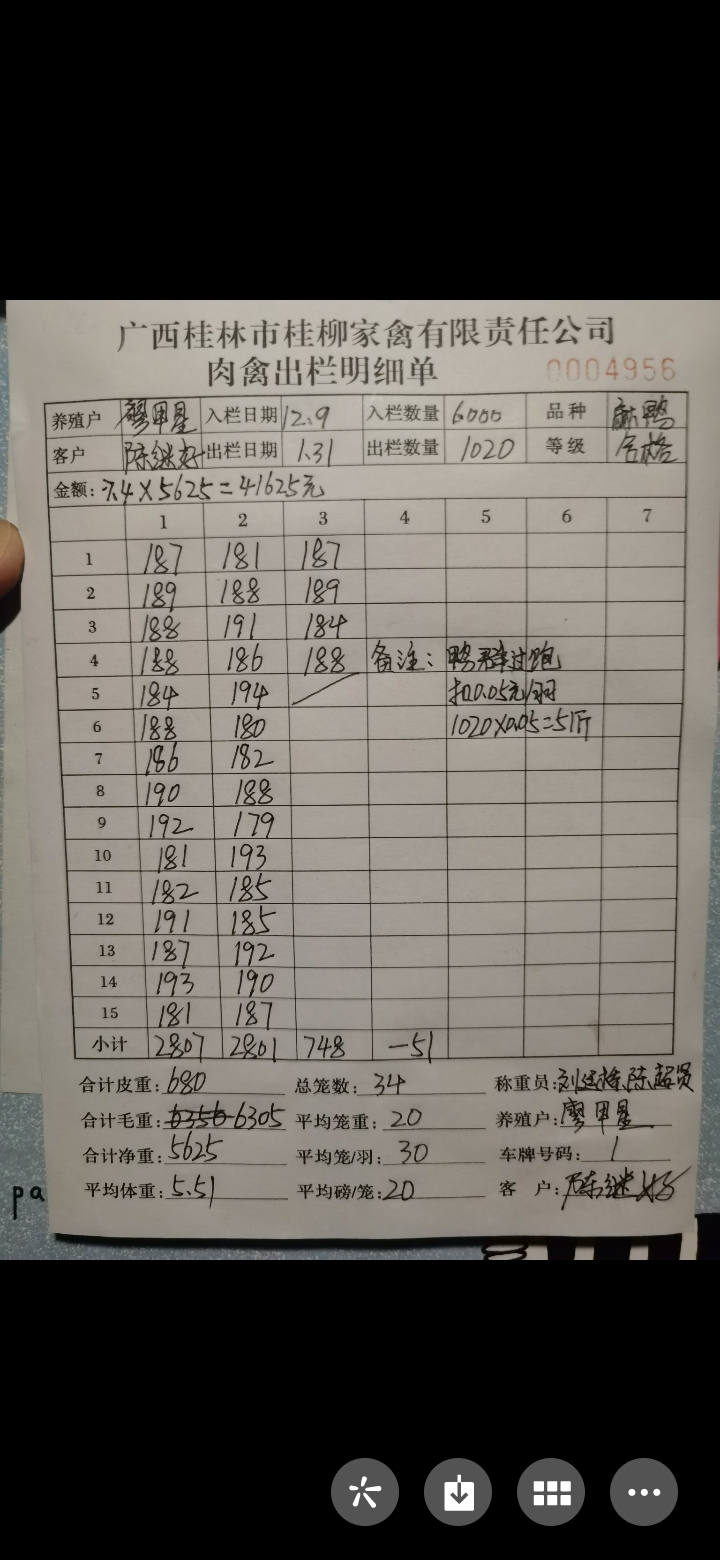 广西桂林市桂柳家禽有限责任公司
肉禽出栏明细单 0004956
养殖户 廖甲星 入栏日期 12.9 入栏数量 6000 品种 麻鸭
客户 陈继好 出栏日期 1.31 出栏数量 1020 等级 合格
金额: 7.4×5625=41625元
1 2 3 4 5 6 7
1 187 181 187
2 189 188 189
3 188 191 184
4 188 186 188 备注: 鸭过饱
5 184 194 扣0.05元/羽
6 188 180 1020×0.05=51斤
7 186 182
8 190 188
9 192 179
10 181 193
11 182 185
12 191 185
13 187 192
14 193 190
15 181 187
小计 2807 2801 748 -51
合计皮重: 680 总笼数: 34 称重员: 陈超贤
合计毛重: 6356 6305 平均笼重: 20 养殖户: 廖甲星
合计净重: 5625 平均笼/羽: 30 车牌号码: 1
平均体重: 5.51 平均磅/笼: 20 客 户: 陈继好
pa